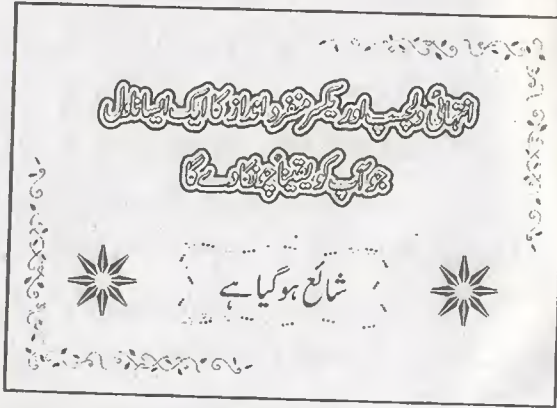 انتہائی دلچسپ اور یکسر منفرد انداز کا ایک ایسا ناول
جو آپ کو یقیناً چونکا دے گا
شائع ہو گیا ہے